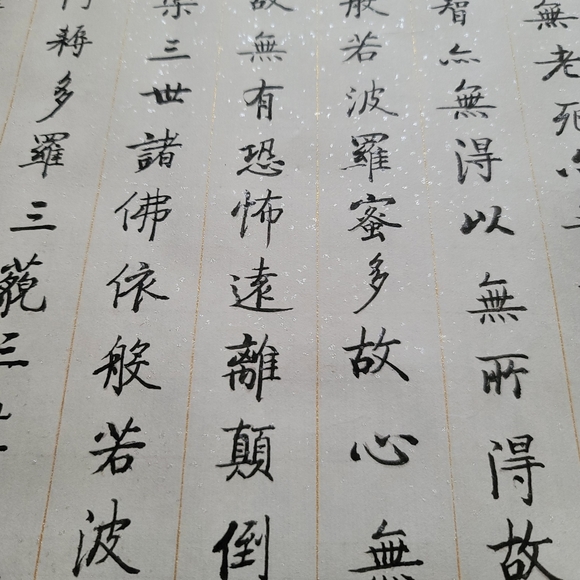 無老死亦
智亦無得以無所得故
般若波羅蜜多故心無
故無有恐怖遠離顛倒
三世諸佛依般若波
耨多羅三藐三